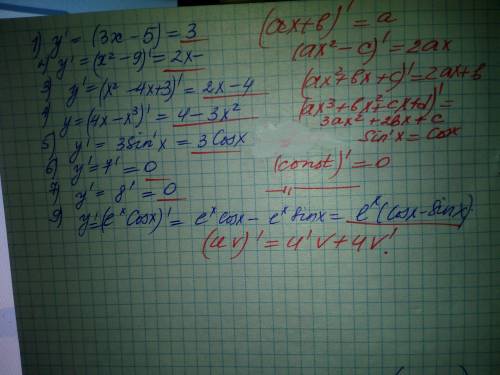 1) y' = (3x - 5) = 3
2) y' = (x² - 9)' = 2x
3) y' = (x² - 4x + 3)' = 2x - 4
y = (4x - x³)' = 4 - 3x²
5) y' = 3sin'x = 3cosx
6) y' = 7' = 0
7) y' = 8' = 0
y' = (eˣ cosx)' = eˣ cosx - eˣ sinx = eˣ (cosx - sinx)
(ax + b)' = a
(ax² - c)' = 2ax
(ax² + bx + c)' = 2ax + b
(ax³ + bx² + cx + d)' =
3ax² + 2bx + c
sin'x = cosx
(const)' = 0
(uv)' = u'v + uv'